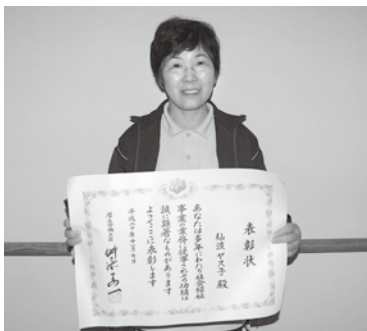 表彰状
仙波ヤス子殿
あなたは多年にわたり社会福祉
事業の業務に従事されその功績は
誠に顕著なものがあります
よってここに表彰します
平成二十年十一月七日
厚生労働大臣